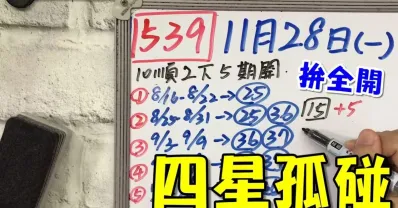 539 11月28日(一)
10順2下5期開
拚全開
① 8/16-8/22→25
② 8/25-8/31→25 36
15 +5
③ 9/3 9/9→36 37
四星孤碰